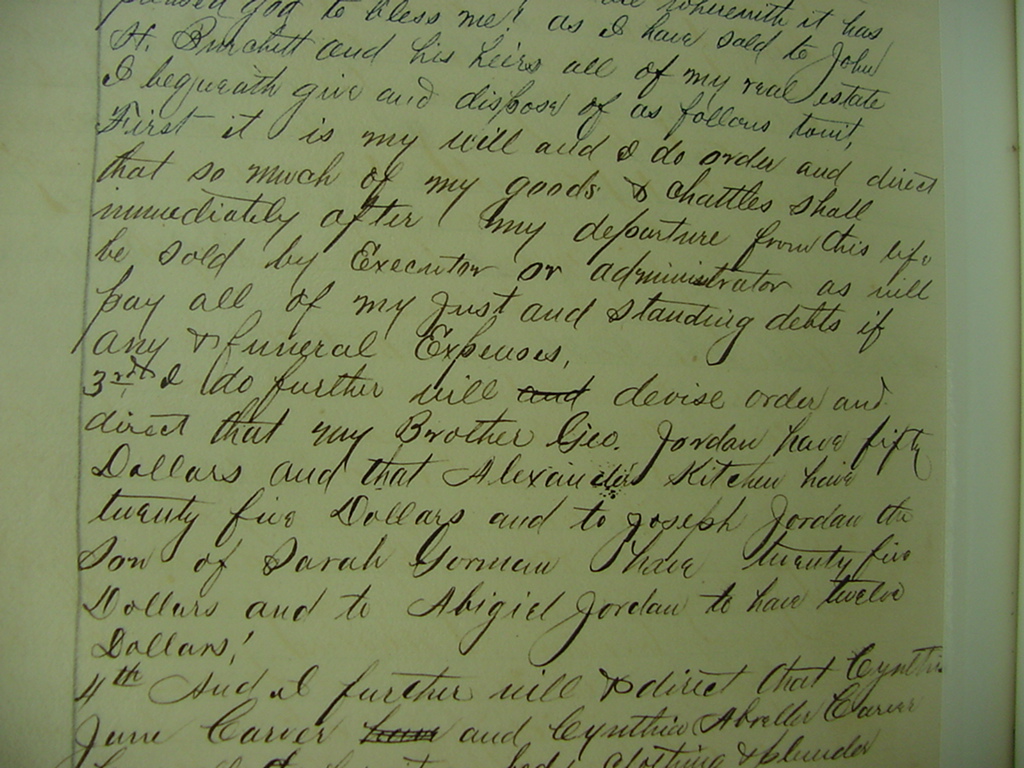 pleased God to bless me as I have sold to John
H. and his heirs all of my real estate
I bequeath give and dispose of as follows towit
First it is my will and I do order and direct
that so much of my goods & chattles shall
immediately after my departure from this life
be sold by Executor or administrator as will
pay all of my Just and standing debts if
any & funeral Expenses.
3rd I do further will and devise order and
direct that my Brother Geo. Jordan have fifty
Dollars and that Kitchen have
twenty five Dollars and to Joseph Jordan the
Son of Sarah twenty five
Dollars and to Abigiel Jordan to have twelve
Dollars,
4th And I further will & direct that Cynthia
Jane Carver and Cynthia Carver
bed, clothing &